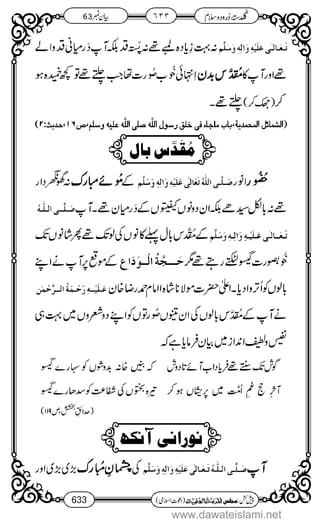 گلدستۂ دُرود و سلام ٦٣٣ بیان نمبر 63
تَعَالٰی عَلَیْہِ وَاٰلِہٖ وَسَلَّم نہ بہت زیادہ لمبے تھے نہ پستہ قد بلکہ آپ درمیانی قد والے
تھے اور آپ کا مُقدَّس بدن انتہائی خوب صورت تھا جب چلتے تھے تو کچھ خمیدہ ہو
کر (جھک کر) چلتے تھے۔
(الشمائل المحمدیة، باب ماجاء فی خلق رسول الله صلی الله علیه وسلم، ص۱۶، حدیث:۲)
مُقدَّس بال
حُضُور انور صَلَّی اللہُ تَعَالٰی عَلَیْہِ وَاٰلِہٖ وَسَلَّم کے مُوئے مبارک نہ گھونگھر دار
تھے نہ بالکل سیدھے بلکہ ان دونوں کیفیتوں کے درمیان تھے۔ آپ صَلَّی اللہُ
تَعَالٰی عَلَیْہِ وَاٰلِہٖ وَسَلَّم کے مُقدَّس بال پہلے کانوں کی لو تک تھے پھر شانوں تک
خوبصورت گیسو لٹکتے رہتے تھے مگر حَجَّۃُ الْوَدَاع کے موقع پر آپ نے اپنے
بالوں کو اُتروا دیا۔ اعلیٰ حضرت مولانا شاہ امام احمد رضا خان عَلَیْہِ رَحْمَۃُ الرَّحْمٰن
نے آپ کے مُقدَّس بالوں کی ان تینوں صُورتوں کو اپنے دو شعروں میں بہت ہی
نفیس و لطیف انداز میں بیان فرمایا ہے کہ
گوش تک سنتے تھے فریاد اب آئے تا دوش کہ بنیں خانہ بدوشوں کو سہارے گیسو
آخرِ حج غمِ اُمّت میں پریشاں ہو کر تیرہ بختوں کی شفاعت کو سدھارے گیسو
(حدائقِ بخشش، ص ۱۱۹)
نورانی آنکھ
آپ صَلَّی اللہُ تَعَالٰی عَلَیْہِ وَاٰلِہٖ وَسَلَّم کی چشمانِ مُبارک بڑی بڑی اور
633
www.dawateislami.net